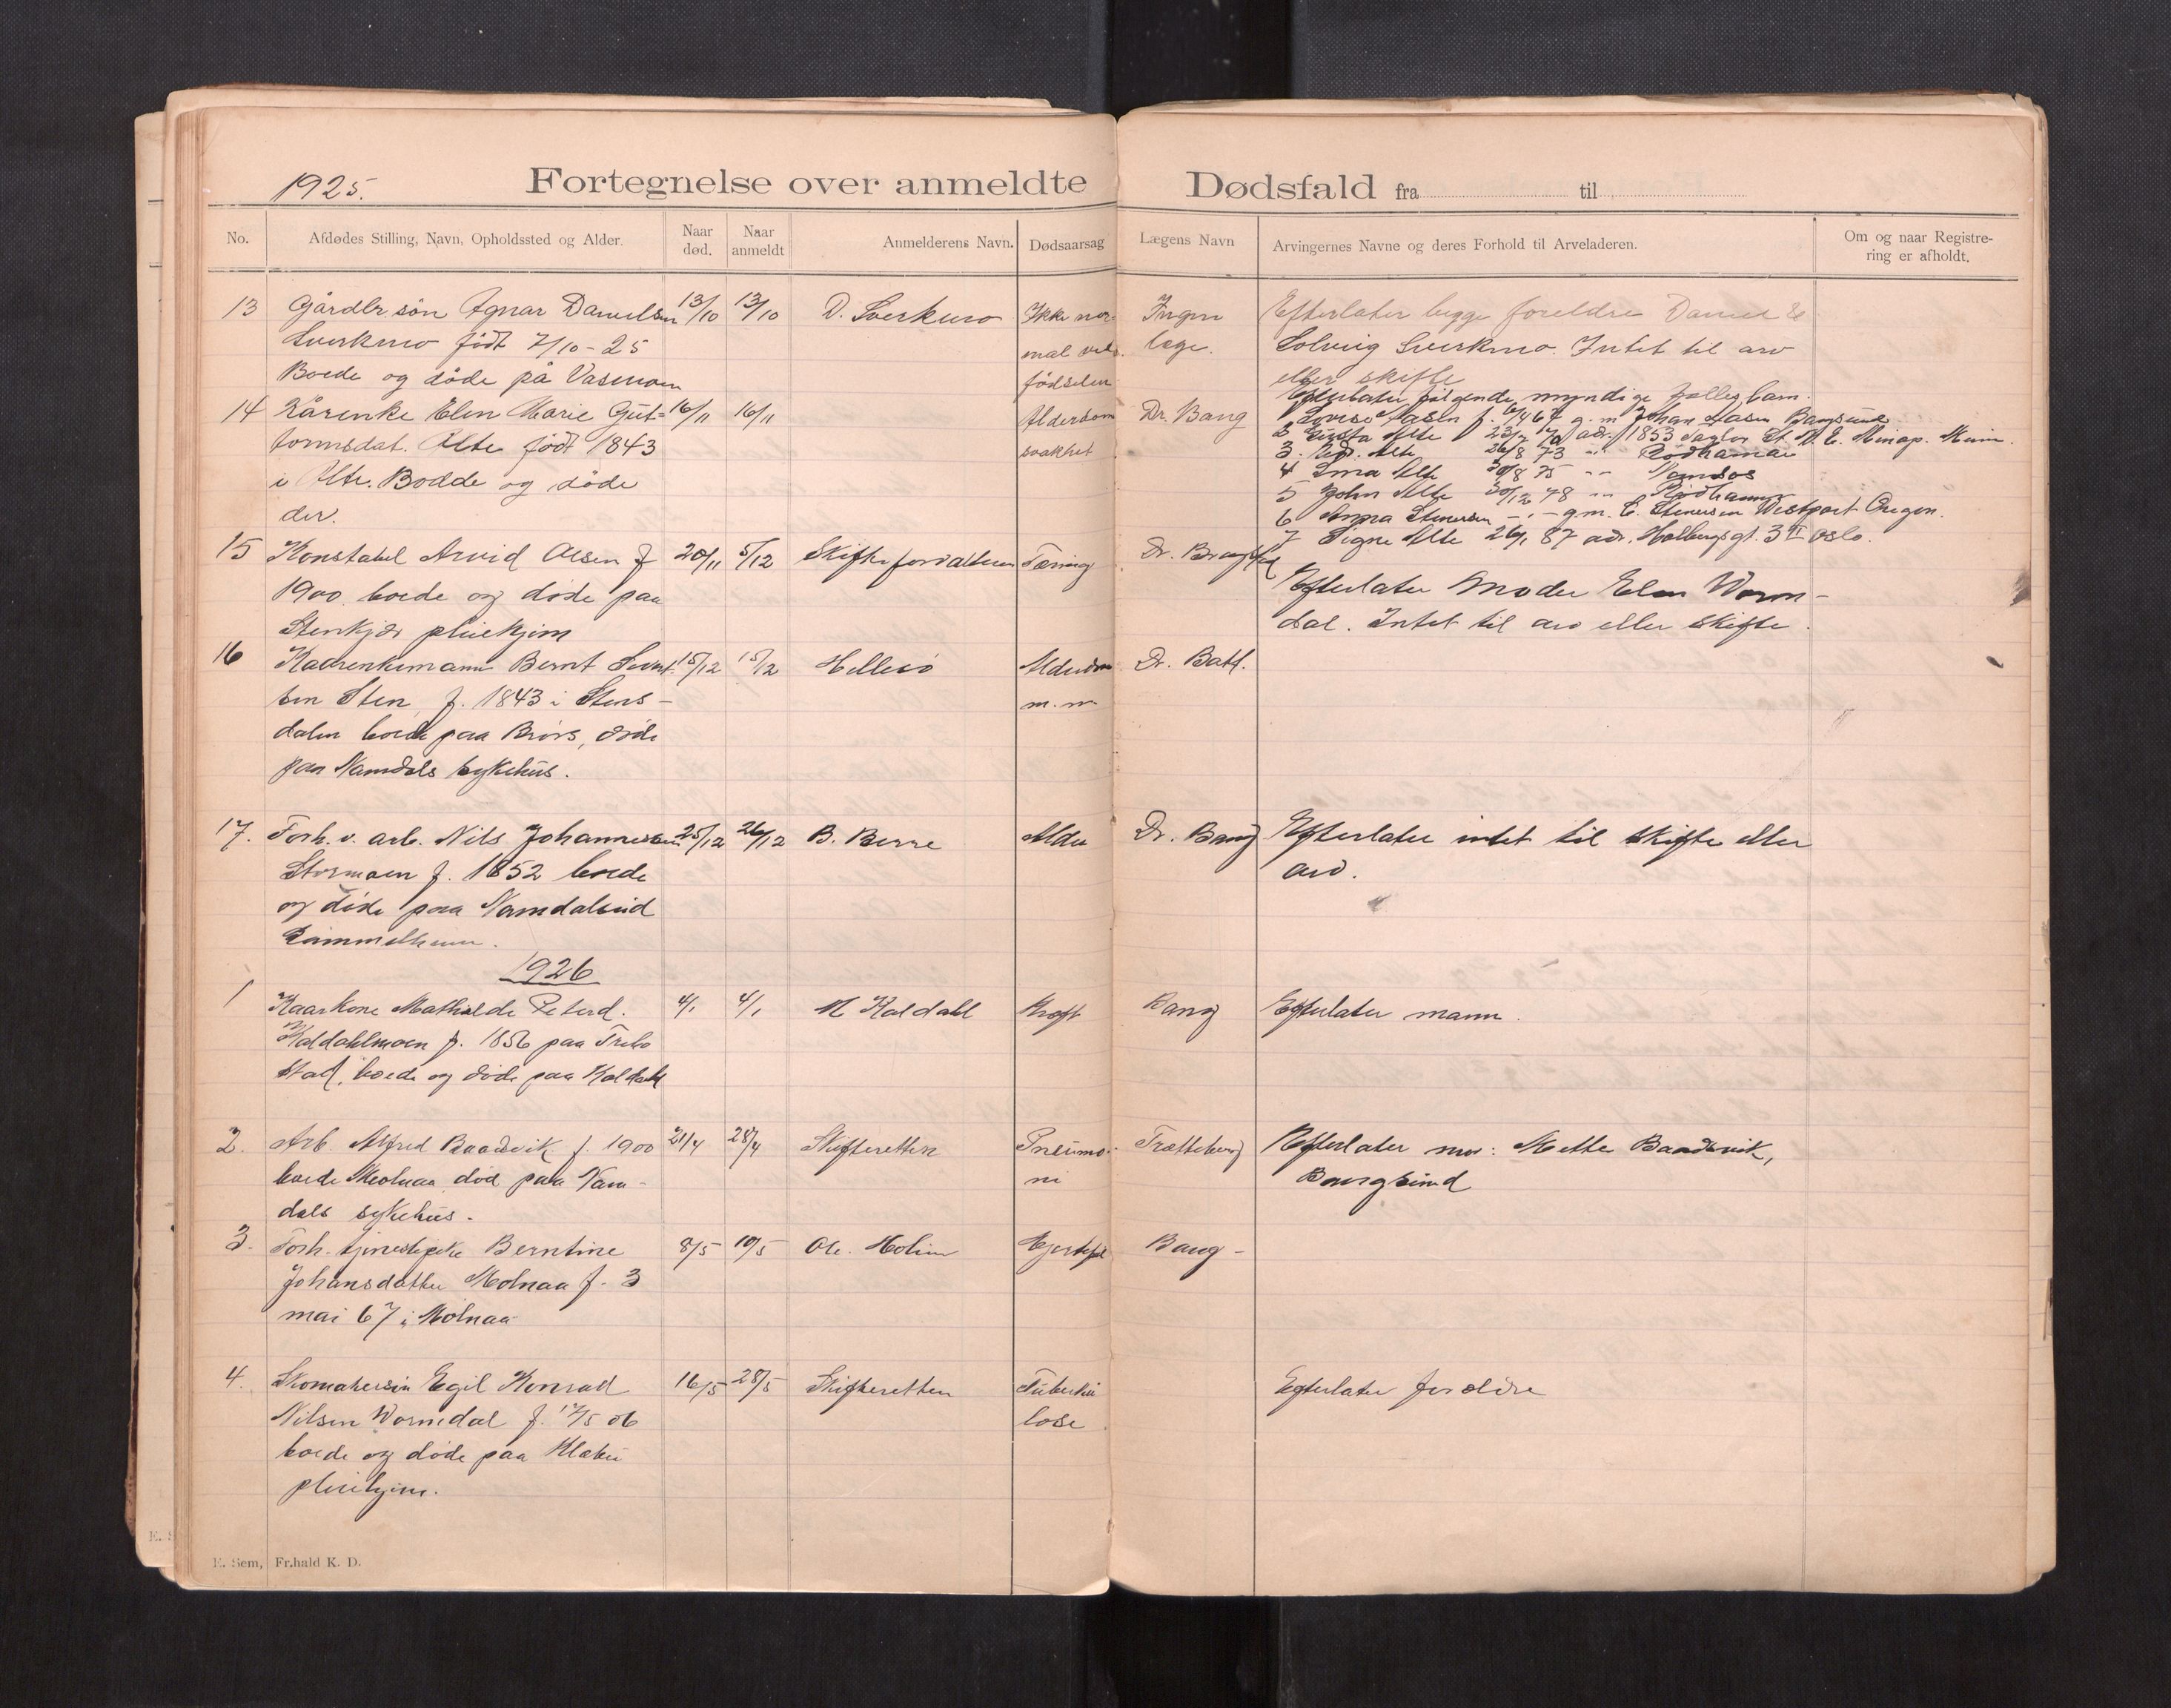 1925.
Fortegnelse over anmeldte Dødsfald fra til
No.
Afdødes Stilling, Navn, Opholdssted og Alder.
Naar død.
Naar anmeldt
Anmelderens Navn.
Dødsaarsag
Lægens Navn
Arvingernes Navne og deres Forhold til Arveladeren.
Om og naar Registre-
ring er afholdt.
13 Gårdbr. søn Agnar Danielsen 13/10 13/10 D. Sverkmo Ikke nor- Ingen Efterlater begge foreldre Daniel &
Sverkmo født 7/10-25 mal ved læge. Solveig Sverkmo. Intet til arv
Boede og døde på Vasmoen fødselen eller skifte
14 Kårenke Elen Marie Gut- 16/11 16/11 Alderdom Dr. Bang
tormsdat. Alte født 1843 svakhet
i Alte. Bodde og døde
der.
Efterlater følgende myndige fellesbarn
1 Lovise Aasen f. 6/4 67 g. m. Johan Aasen Bangsund
2 Alte 23/7 70 adr. 1853 Taylor St. N. E. Minap. Minn.
3. Alte 26/8 73 -"- Rødhammer
4 Alte 30/8 75 -"- Namsos
5 John Alte 30/12 78 -"- Rødhammer
6 Anna Stenersen -,- g.m. E. Stenersen Westport Oregon.
7 Signe Alte 26/1 87 adr. Holbergsgt. 3 II Oslo.
15 Konstabel Arvid Olsen f 20/11 5/12 Skifteforvalteren Tæring Dr.
1900 boede og døde paa Efterlater Moder Elen Worm-
Stenkjær pleiehjem dal. Intet til arv eller skifte.
16 Kaarenkemann Bernt 15/12 15/12 Hellesø Alderdom Dr. Batt.
sen Sten, f. 1843 i Stens- m. m
dalen boede paa Brørs, døde
paa Namdals sykehus.
17. Forh. v. arb. Nils Johannessen 25/12 26/12 B. Berre Alder Dr. Bang Efterlater intet til skifte eller
Stormoen f. 1852 boede arv.
og døde paa Namdalseid
Gammelheim.
1926
1 Kaarkone Mathilde Petersd. 4/1 4/1 M Kaldahl Kræft Bang Efterlater mann.
Kaldahlmoen f. 1856 paa
stad, boede og døde paa Kaldahl
2. Arb. Alfred Baadsvik f. 1900 21/4 28/4 Skifteretten Pneumo- Trætteberg Efterlater mor: Mette Baadsvik,
boede Meolnaa død paa Nam- ni Bangsund
dals sykehus.
3. Forh. tjenestepike Berntine 8/5 10/5 Ole Holien Hjertefeil Bang -
Johansdatter Molnaa f. 3
mai 67 i Molnaa
4. Skomakersøn Egil Konrad 16/5 28/5 Skifteretten Tuberku Efterlater forældre
Nilsen Wormdal f. 17/5 06 lose
boede og døde paa Klæbu
pleiehjem.
E. Sem, Fr.hald K. D.